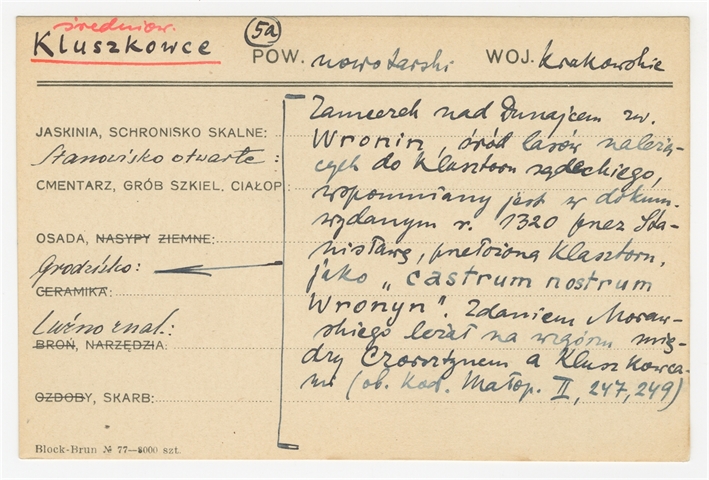 średniow.
Kluszkowce
5a
POW. nowotarski WOJ. Krakowskie
JASKINIA, SCHRONISKO SKALNE:
Stanowisko otwarte:
CMENTARZ, GRÓB SZKIEL. CIAŁOP:
OSADA, NASYPY ZIEMNE:
Grodzisko:
CERAMIKA:
Luźno znal.:
BROŃ, NARZĘDZIA:
OZDOBY, SKARB:
Zameczek nad Dunajcem zw.
Wronin, śród lasów należą-
cych do Klasztoru sądeckiego,
wspomniany jest w dokum.
wydanym r. 1320 przez Sta-
nisławę, przełożoną Klasztoru,
jako „castrum nostrum
Wronyn". Zdaniem Moraw-
skiego leżał na wzgórzu mię-
dzy Czorsztynem a Kluszkowca-
mi (ob. Kod. Małop. II, 247, 249)
Block-Brun № 77—8000 szt.